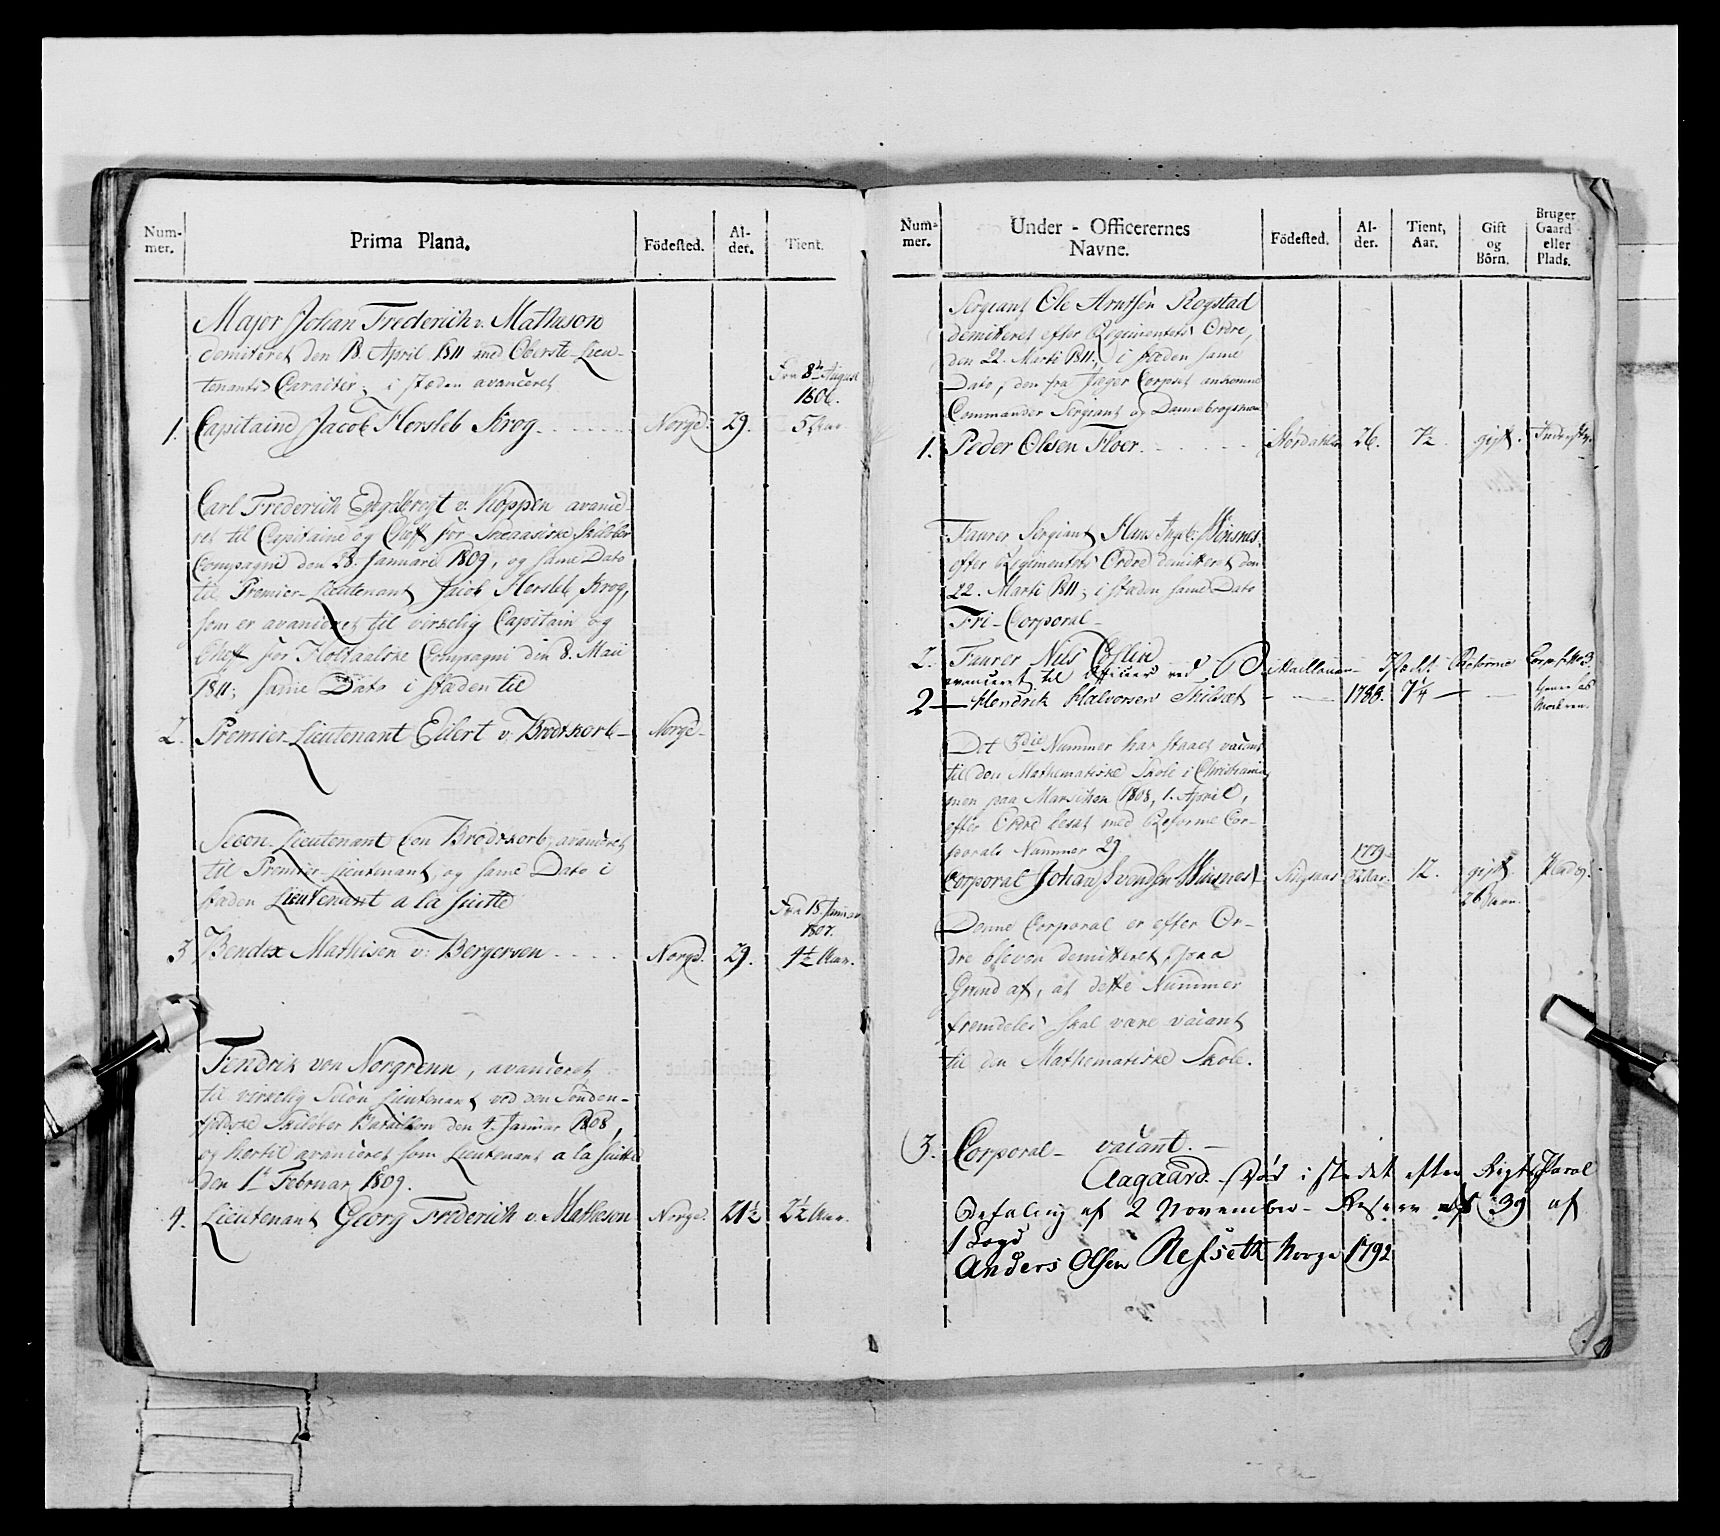 Num-
mer.
Prima Plana.
Födested.
Al-
der.
Tient.
Major Johan Frederich v. Matheson
demiteret den 18. April 1811 med Oberste-Lieu-
tenants Caracter; i stæden avanceret
Fra 8de August
1806.
1. Capitaine Jacob Hersleb Krog Norge 29. 5 Aar
Carl Frederich Engelbregt v. Koppen avance-
ret til Capitaine og Cheff for Sneaasiske Skilöber
Compagnie den 28. Januarii 1809, og same Dato
til Premier-Lieutenant Jacob Hersleb Krog,
som er avanceret til virkelig Capitain og
Cheff for Holtaalske Compagni den 8. Maii
1811; same Dato i stæden til
2. Premier-Lieutenant Eilert v. Brodtkorb Norge
Secon-Lieutenant von Brodtkorb, avanceret
til Premier-Lieutenant, og same Dato i
stæden Lieutenant a la Suitte
Fra 18. Januar
1807.
3 Bendix Mathisen v. Bergersen Norge. 29. 4½ Aar.
Fendrik von Norgrenn, avanceret
til virkelig Secon Lieutenant ved den Sönden-
fieldske Skilöber Bataillon den 4. Januar 1808,
og hertil avanceret som Lieutenant a la Suitte
den 1te Februar 1809.
4. Lieutenant Georg Frederich v. Matheson Norge. 21½ 2½ Aar.
Num-
mer.
Under-Officerernes
Navne.
Födested.
Al-
der.
Tient,
Aar.
Gift
og
Börn.
Bruger
Gaard
eller
Plads.
Sergeant Ole Arntsen Rogstad
demitteret efter Regimentets Ordre,
den 22. Martii 1811, i stæden same
Dato, den fra Jæger Corpset ankomne
Commander Sergeant og Dannebrogsmand
1. Peder Olsen Floer. Stördahlen 26. 7½ gift.
Faurer Sergeant Hans Meisnes,
efter Regimentets Ordre demitteret den
22. Martii 1811; i stæden same Dato
Fri-Corporal
2. Faurer Nils
avanceret til Officeer ved
2 Hendrik Halvorsen 1788. 7¼
Det 3die Nummer har staaet vacant
til den Mathematiske Skole i Christiania
men paa Marschen 1808, 1. April,
efter Ordre besat med Reforme Cor-
porals Nummer 29
Corporal Johan Svendsen 1779 32 Aar. 12. gift. Plads.
2 Barn.
Denne Corporal er efter Or-
dre bleven demitteret, paa
Grund af, at dette Nummer
fremdeles skal være vacant
til den Mathematiske Skole.
3. Corporal vacant.
Aagaard. Död i stedet efter Parol
Befaling af 2 November 39 af
Anders Olsen Refseth Norge 1792